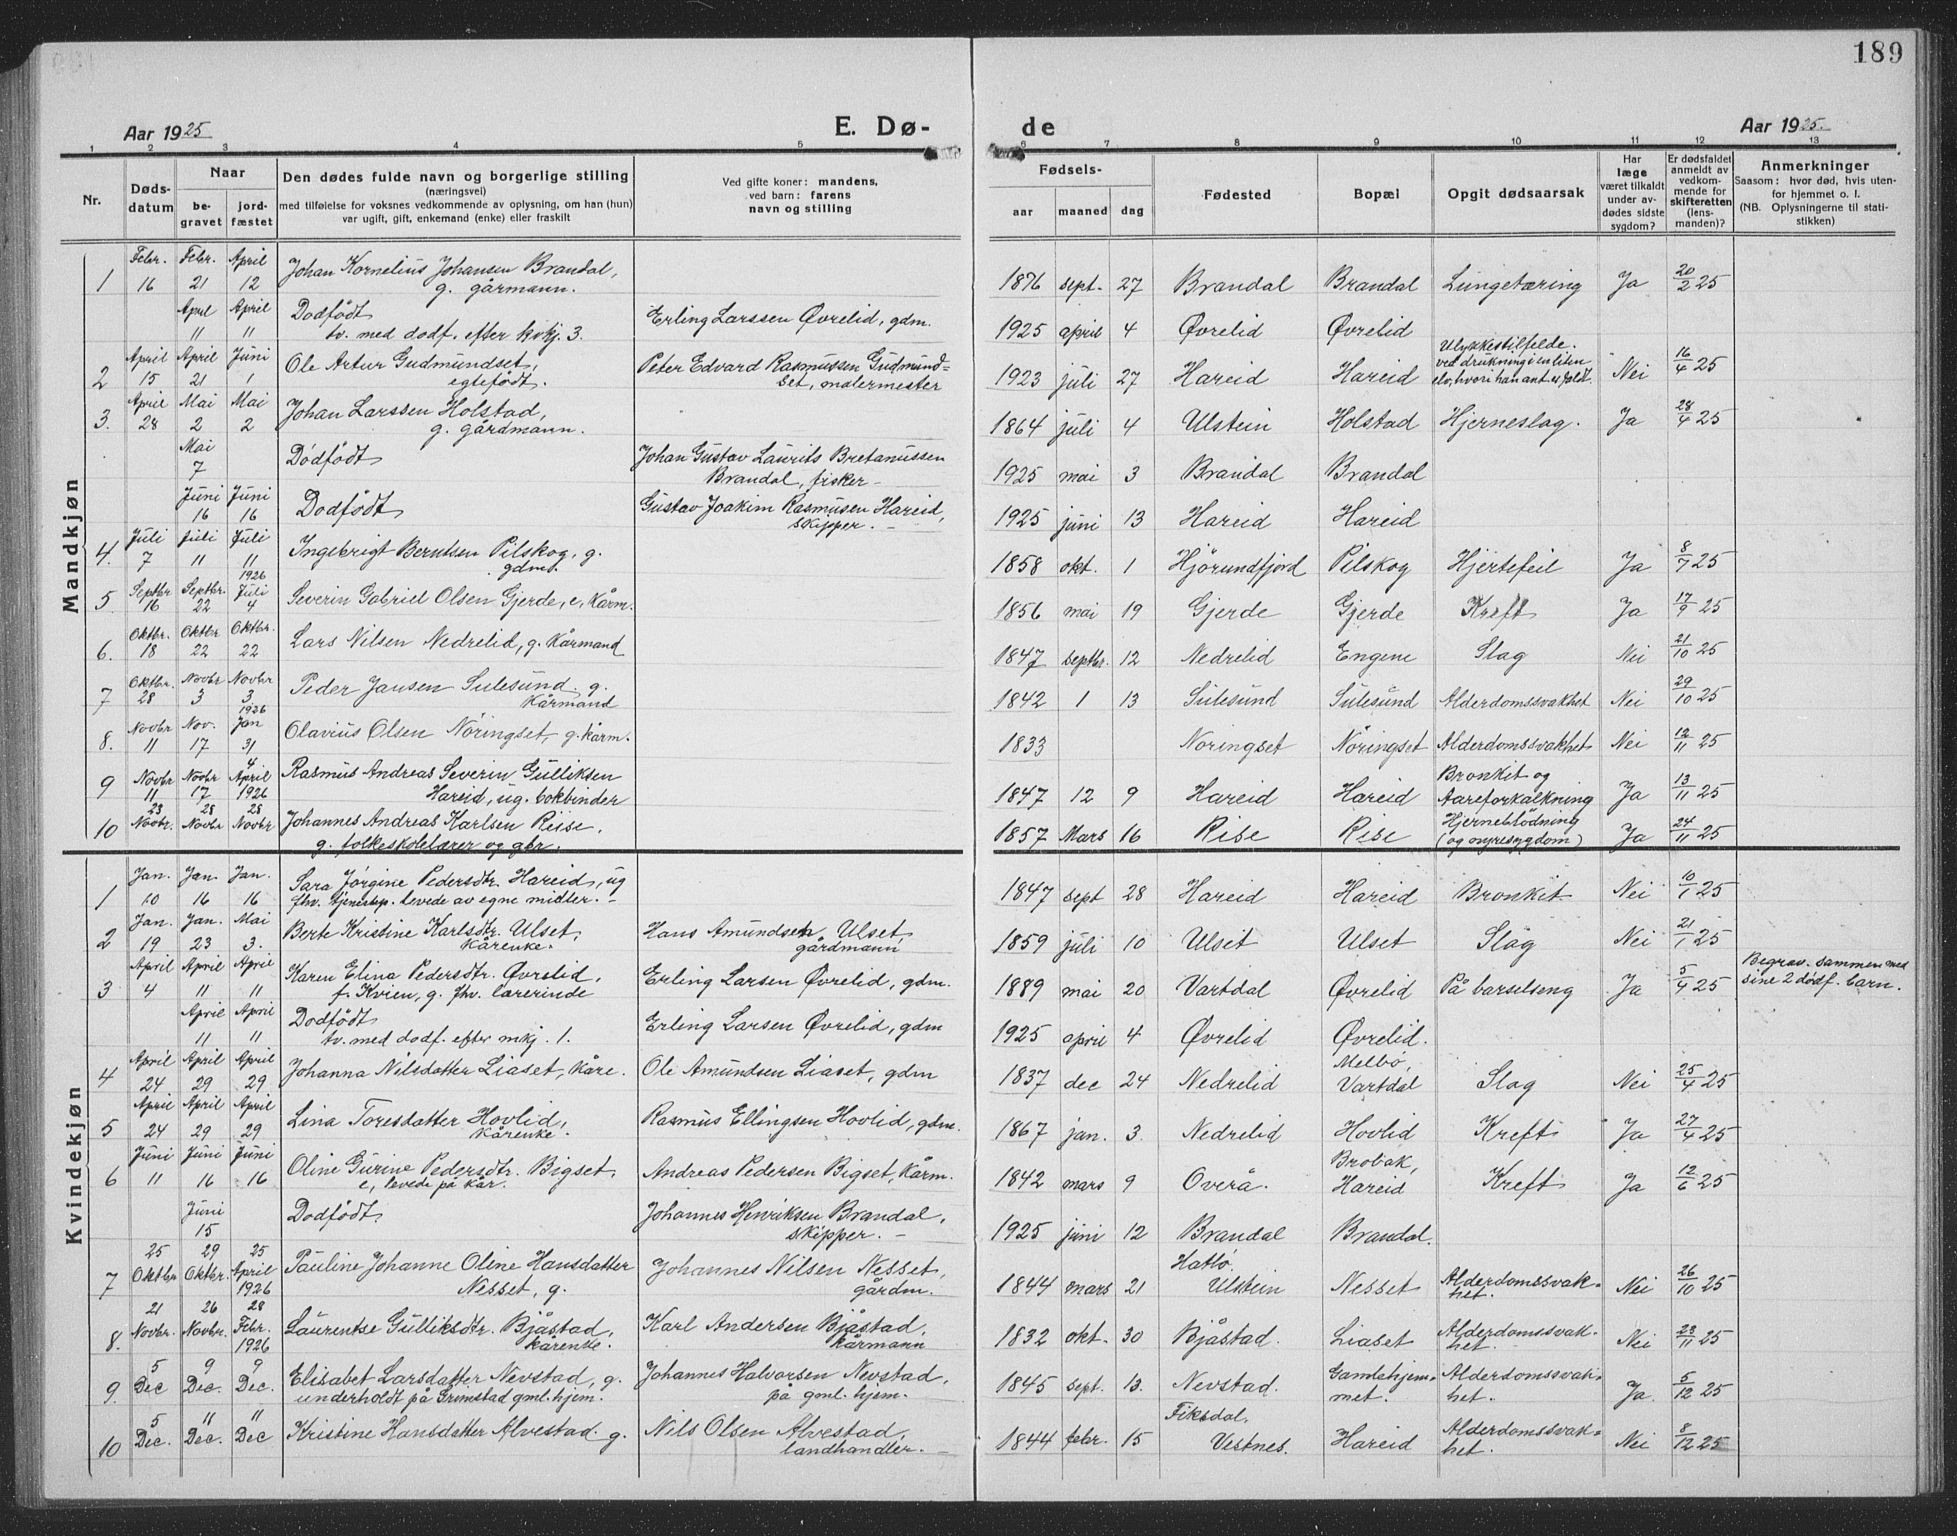 189
Aar 1925
E. Dø-
de
Aar 1925.
1 2 3 4 5 6 7 8 9 10 11 12 13
Nr.
Døds-
datum
Naar
be-
gravet
jord-
fæstet
Den dødes fulde navn og borgerlige stilling
(næringsvei)
med tilføielse for voksnes vedkommende av oplysning, om han (hun)
var ugift, gift, enkemand (enke) eller fraskilt
Ved gifte koner: mandens,
ved barn: farens
navn og stilling
Fødsels-
aar maaned dag
Fødested
Bopæl
Opgit dødsaarsak
Har
læge
været tilkaldt
under av-
dødes sidste
sygdom?
Er dødsfaldet
anmeldt av
vedkom-
mende for
skifteretten
(lens-
manden)?
Anmerkninger
Saasom: hvor død, hvis uten-
for hjemmet o. l.
(NB. Oplysningerne til stati-
stikken)
Mandkjøn
1 Febr. 16 Febr. 21 April 12 Johan Kornelius Johansen Brandal,
g. gårmann. 1876 sept. 27 Brandal Brandal Lungetæring Ja 20/2 25
April 11 April 11 Dødfødt
tv. med dødf. efter kvkj. 3. Erling Larssen Øvrelid, gdm. 1925 april 4 Øvrelid Øvrelid
2 April 15 April 21 Juni 1 Ole Artur Gudmundset,
egtefødt. Peter Edvard Rasmussen Gudmund=
set, malermester 1923 juli 27 Hareid Hareid Ulykkestilfelde.
ved drukning i en liten
elv, hvori han ant. er faldt. Nei 16/4 25
3. April 28 Mai 2 Mai 2 Johan Larssen Holstad,
g. gårdmann. 1864 juli 4 Ulstein Holstad Hjerneslag. Ja 28/4 25
Mai 7 Dødfødt Johan Gustav Laurits Bretanussen
Brandal, fisker - 1925 mai 3 Brandal Brandal
Juni 16 Juni 16 Dødfødt Gustav Joakim Rasmusen Hareid,
skipper. - 1925 juni 13 Hareid Hareid
4. Juli 7 Juli 11 Juli 11 Ingebrigt Berntsen Pilskog, g.
gdm. 1858 okt. 1 Hjørundfjord Pilskog Hjertefeil Ja 8/7 25
5. Septbr 16 Septbr. 22 1926 Juli 4 Severin Gabriel Olsen Gjerde, e, kårm. 1856 mai 19 Gjerde Gjerde Kreft Ja 17/9 25
6. Oktbr. 18 Oktbr 22 Oktbr. 22 Lars Nilsen Nedrelid, g. kårmand 1847 septbr. 12 Nedrelid Engene Slag Nei 21/10 25
7 Oktbr. 28 Novbr 3 Novbr 3 Peder Jansen Sulesund g.
kårmand 1842 1 13 Sulesund Sulesund Alderdomssvakhet Nei 29/10 25
8. Novbr 11 Nov. 17 1926 Jan 31 Olavius Olsen Nøringset, g. kårm. 1833 Noringset Nøringset Alderdomssvakhet Nei 12/11 25
9 Novbr 11 Novbr 17 4 April 1926 Rasmus Andreas Severin Gulliksen
Hareid, ug. bokbinder 1847 12 9 Hareid Hareid Bronkit og
Aareforkalkning Ja 13/11 25
10 23 Novbr. 28 Novbr 28 Novbr Johannes Andreas Karlsen Riise,
g. folkeskolelærer og gbr. 1857 Mars 16 Rise Rise Hjerneblødning
(og nyresygdom) Ja 24/11 25
Kvindekjøn
1 Jan. 10 Jan. 16 Jan. 16 Sara Jørgine Pedersdtr. Hareid, ug
fhv. tjenestep. levede av egne midler. - 1847 sept 28 Hareid Hareid Bronkit Nei 10/1 25
2 Jan. 19 Jan. 23 Mai 3. Berte Kristine Karlsdtr. Ulset,
kårenke. Hans Amundsen Ulset
gårdmann 1859 juli 10 Ulset Ulset Slag Nei 21/1 25
3 April 4 April 11 April 11 Karen Elina Pedersdtr. Øvrelid,
f. Kvien, g. fhv. lærerinde Erling Larsen Øvrelid, gdm. 1889 mai 20 Vartdal Øvrelid På barselseng Ja 5/4 25 Begrav. sammen med
sine 2 dødf. barn.
April 11 April 11 Dødfødt
tv. med dødf. efter mkj. 1. Erling Larsen Øvrelid, gdm 1925 april 4 Øvrelid Øvrelid.
4 April 24 April 29 April 29 Johanna Nilsdatter Liaset, kåre. Ole Amundsen Liaset, gdm 1837 dec 24 Nedrelid Melbø,
Vartdal Slag Nei 25/4 25
5 April 24 April 29 April 29 Lina Toresdatter Hovlid,
kårenke. Rasmus Ellingsen Hovlid, gdm. 1867 jan. 3. Nedrelid Hovlid Kreft Ja 27/4 25
6 Juni 11 Juni 16 Juni 16 Oline Gurine Pedersdtr. Bigset,
e, levede på kår. Andreas Pedersen Bigset, kårm. 1842 mars 9 Overå. Brobak,
Hareid Kreft Ja 12/6 25
Juni 15 Dødfødt Johannes Henriksen Brandal,
skipper. - 1925 juni 12 Brandal Brandal.
7 25 Oktbr 29 Oktbr. 25 April 1926 Pauline Johanne Oline Hansdatter
Nesset, g. Johannes Nilsen Nesset,
gårdm. 1844 mars 21 Hatlø.
Ulstein Nesset Alderdomssvak=
het. Nei 26/10 25
8. 21 Novbr. 26 Novbr. 28 Febr. 1926 Laurentse Gulliksdtr. Bjåstad,
kårenke. Karl Andersen Bjåstad,
kårmann 1832 okt. 30 Bjåstad. Liaset Alderdomssvak=
het. Nei 23/11 25
9. 5 Dec 9 Dec. 9 Dec. Elisabet Larsdatter Nevstad, g.
underholdt på Grimstad gml. hjem. Johannes Halvorsen Nevstad,
på gml. hjem. 1845 sept. 13. Nevstad. Gamlehjem=
met. Alderdomssvak=
het. Ja. 5/12 25
10 5 Dec. 11 Dec. 11 Dec Kristine Hansdatter Alvestad. g. Nils Olsen Alvestad,
landhandler. - 1844 febr. 15 Fiksdal,
Vestnes. Hareid Alderdomssvak=
het. Nei 8/12 25